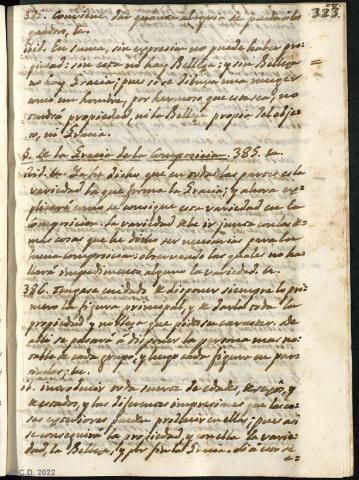 323.
382. Conviene dar quanta alegria se pueda à los
quadros, &.
ibid. En suma, sin expresion no puede haber pro-
piedad: sin esta no hay Belleza; y sin Belleza
no hay Gracia; pues si se dibuxa una muger
como un hombre, por hermoso que esto sea, no
tendrà propiedad, ni la Belleza propia del obje-
to, ni Gracia.
§. De la Gracia de la Composicion. 385. &.
ibid. &. Ya he dicho que en todas las partes es la
variedad la que forma la Gracia; y ahora ex-
plicaré como se consigue esta variedad en la
Composicion. La variedad debe ir junta con las de-
mas cosas que he dicho ser necesarias para la
buena composicion: observando las quales no ha-
llará impedimento alguno la variedad. &.
386. Tengase cuidado de disponer siempre lo pri-
mero la figura principal, y de darla toda la
propiedad y nobleza que pide su caracter. De
allì se pasarà à disponer la persona mas no-
table de cada grupo, y luego cada figura en par-
ticular; &.
ib. introducir toda suerte de edades, de sexos, y
de estados, y las diferentes impresiones que las co-
sas exteriores pueden producir en ellas; pues asi
se conseguirà la propiedad, y con ella la varie-
dad, la Belleza, y por fin la Gracia.
C.D. 2022